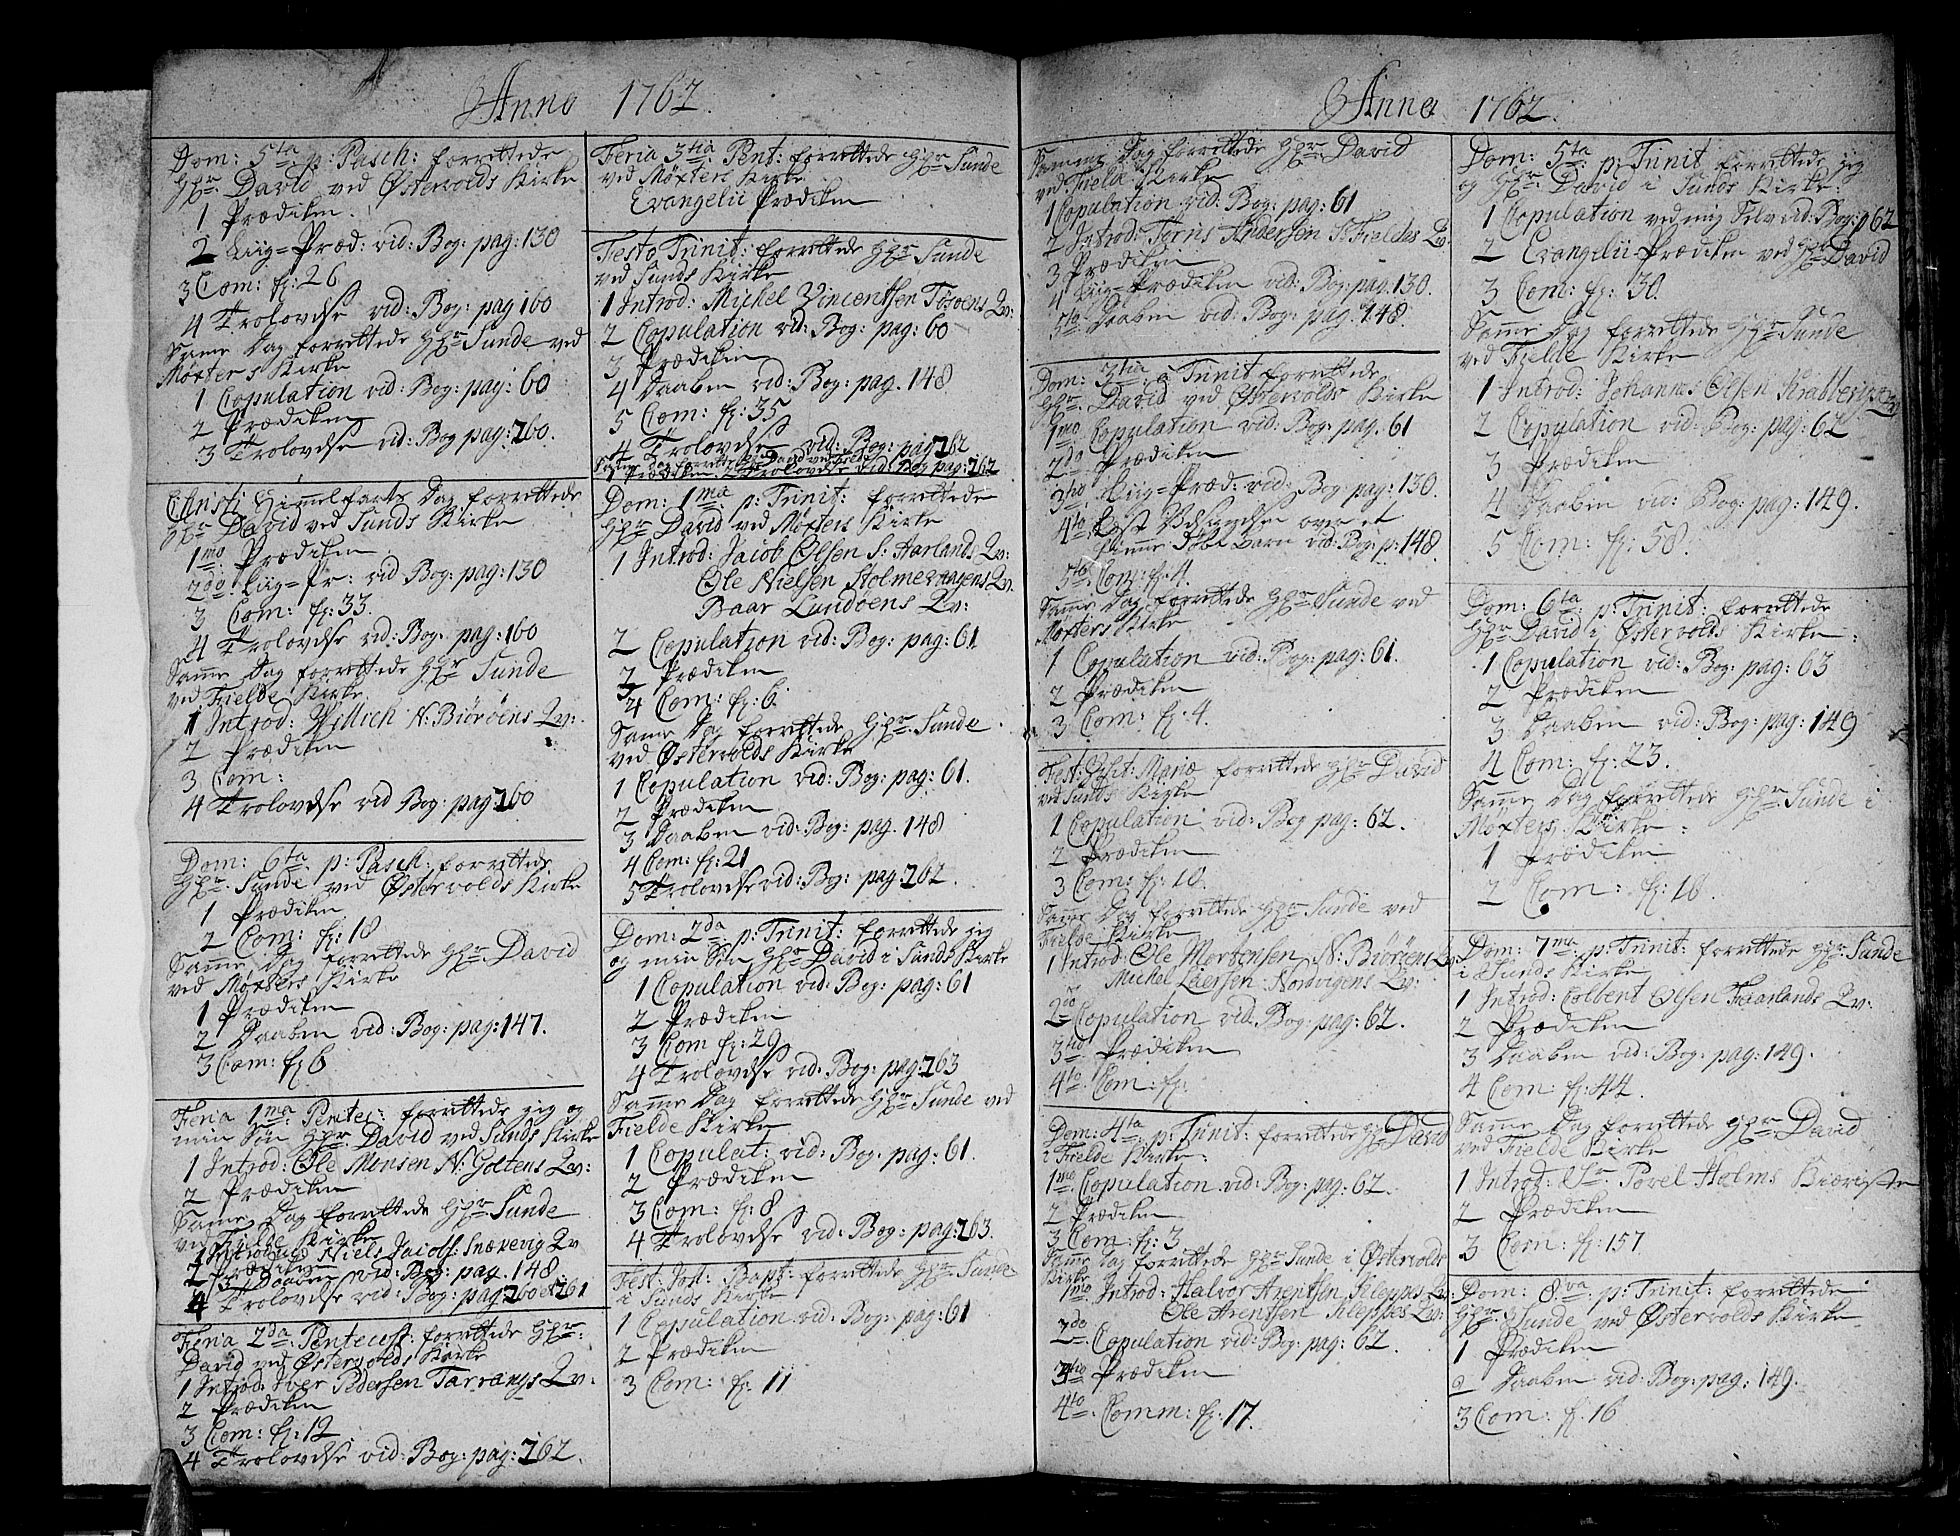 Anno 1762.
Dom: 5ta p: Pasch: forrettede
Hr. David ved Østervolds Kirke
1 Prædiken.
2 Liig=Præd: vid: Bog: pag: 130
3 Com: fr: 26
4 Trolovelse vid: Bog: pag 160
Samme Dag forrettede Hr. Sunde ved
Møxters Kirke
1 Copulation vid: Bog: pag: 60
2 Prædiken
3 Trolovelse vid: Bog pag: 260.
Christi Himmelfarts Dag forrettede
Hr. David ved Sunds Kirke
1mo Prædiken
2do Liig=Pr: vid Bog: pag: 130
3 Com: fr: 33.
4 Trolovelse vid: Bog. pag: 160
Samme Dag forrettede Hr. Sunde
ved Fielde Kirke
1 Introd: Didrich N: Biørøens Qv:
2 Prædiken
3 Com:
4 Trolovelse vid Bog: pag 260
Dom: 6ta p: Pasch: forrettede
Hr. Sunde ved Østervolds Kirke
1 Prædiken
2 Com: fr: 18
Samme Dag forrettede Hr. David
ved Møxters Kirke
1 Prædiken
2 Daaben vid: Bog: pag: 147.
3 Com: fr 6
Feria 1ma Pentec: forrettede jeg og
min Søn Hr. David ved Sunds Kirke
1 Introd: Ole Monsen N: Goltens Qv:
2 Prædiken
Samme Dag forrettede Hr. Sunde
ved Fielde Kirke
1 Introd: Niels Jacobs: Snekevig Qv
2 Prædiken
3 Daaben vid: Bog: pag. 148.
4 Trolovelse vid: Bog: pag 260 et 261
Feria 2da Pentecost: forrettede Hr.
David ved Østervolds Kirke
1 Introd: Iver Pedersen Tarrangs Qv:
2 Prædiken
3 Com: fr: 12
4 Trolovelse vid: Bog: pag: 262.
Feria 3tia Pent: forrettede Hr. Sunde
ved Møxters Kirke
Evangelii Prædiken
Festo Trinit: forrettede Hr. Sunde
ved Sunds Kirke
1 Introd: Mickel Vincentsen Toføens Qv:
2 Copulation vid: Bog: pag: 60
3 Prædiken
4 Daaben vid: Bog: pag. 148
5 Com: fr: 35
4 Trolovelse vid: Bog: pag 262
Samme Dag forrettede Hr. David ved
1 Prædiken 2 Trolovelse vid: Bog pag: 262
Dom: 1ma p: Trinit: forrettede
Hr. David ved Møxters Kirke
1 Introd: Jacob Olsen S: Harlands Qv:
Ole Nielsen Stolmevaagens Qv.
Baar Lundøens Qv:
2 Copulation vid: Bog: pag: 61
3 Prædiken
4 Com: fr: 6.
Samme Dag forrettede Hr. Sunde
ved Østervolds Kirke
1 Copulation vid: Bog: pag: 61.
2 Prædiken
3 Daaben vid: Bog: pag. 148
4 Com: fr: 21
5 Trolovelse vid: Bog: pag: 262.
Dom: 2da p: Trinit: forrettede jeg
og min Søn Hr. David i Sunds Kirke
1 Copulation vid: Bog: pag: 61
2 Prædiken
3 Com fr: 29
4 Trolovelse vid: Bog: pag 263
Samme Dag forrettede Hr. Sunde ved
Fielde Kirke
1 Copulat: vid: Bog: pag: 61.
2 Prædiken
3 Com: fr: 8
4 Trolovelse vid: Bog: pag: 263.
Fest: Joh: Bapt: forrettede Hr. Sunde
i Sunds Kirke
1 Copulation vid: Bog: pag: 61
2 Prædiken
3 Com: fr: 11
Anno 1762.
Samme Dag forrettede Hr. David
ved Fielde Kirke
1 Copulation vid: Bog: pag: 61
2 Introd: Tørris Andersøn S: Fieldes Qv.
3 Prædiken
4 Liig=Prædiken vid: Bog: pag. 130.
5to Daaben vid: Bog: pag: 148.
Dom: 3tia p Trinit forrettede
Hr. David ved Østervolds Kirke
1mo Copulation vid: Bog: pag. 61
2do Prædiken
3tio Liig=Præd: vid: Bog: pag: 130.
4to Læst Velsignelsen over et
hiemme Døbt Barn vid: Bog: p: 148
5to Com: fr: 4.
Samme Dag forrettede Hr. Sunde ved
Møxters Kirke
1 Copulation vid: Bog: pag: 61.
2 Prædiken
3 Com: fr: 4.
Fest: Visit: Mariæ forrettede Hr. David
ved Sunds Kirke
1 Copulation vid: Bog pag: 62.
2 Prædiken
3 Com: fr: 18.
Samme Dag forrettede Hr. Sunde ved
Fielde Kirke
1 Introd: Ole Mortensen N: Biørøens Qv:
Mickel Laersen: Nordvigens Qv:
2do Copulation vid: Bog: pag: 62.
3tio Prædiken
4to Com: fr:
Dom: 4ta p: Trinit: forrettede Hr. David
i Fielde Kirke:
1mo Copulation vid: Bog: pag: 62.
2 Prædiken
3 Com: fr: 3
Samme Dag forrettede Hr. Sunde i Østervolds
Kirke
1mo Introd: Halvor Arentsen Kleppes Qv
Ole Arentsen Kleppes Qv:
2do Copulation vid: Bog: pag: 62.
3tio Prædiken
4to Comm: fr: 17.
Dom: 5ta p: Trinit forrettede jeg
og Hr. David i Sunds Kirke:
1 Copulation ved mig Selv vid: Bog: p 62
2 Evangelii Prædiken ved Hr. David
3 Com: fr: 30.
Samme Dag forrettede Hr. Sunde
ved Fielde Kirke
1 Introd: Johannes Olsen Krabberigs Qv
2 Copulation vid: Bog: pag: 62
3 Prædiken
4 Daaben vid: Bog: pag: 149.
5 Com: fr: 58.
Dom: 6ta p: Trinit: forrettede
Hr. David i Østervolds Kirke:
1 Copulation vid: Bog: pag: 63
2 Prædiken
3 Daaben vid: Bog: pag: 149
4 Com: fr: 23.
Samme Dag forrettede Hr. Sunde i
Møxters Kirke:
1 Prædiken
2 Com: fr: 18.
Dom: 7ma p: Trinit: forrettede Hr. Sunde
i Sunds Kirke
1 Introd: Colbent Olsen Faarlands Qv:
2 Prædiken
3 Daaben vid: Bog: pag: 149.
4 Com: fr: 44.
Samme Dag forrettede Hr. David
ved Fielde Kirke
1 Introd: Sr. Povel Holms Kiæriste
2 Prædiken
3 Com: fr: 157
Dom: 8va p: Trinit: forrettede
Hr. Sunde ved Østervolds Kirke
1 Prædiken
2 Daaben vid: Bog: pag: 149.
3 Com: fr: 16